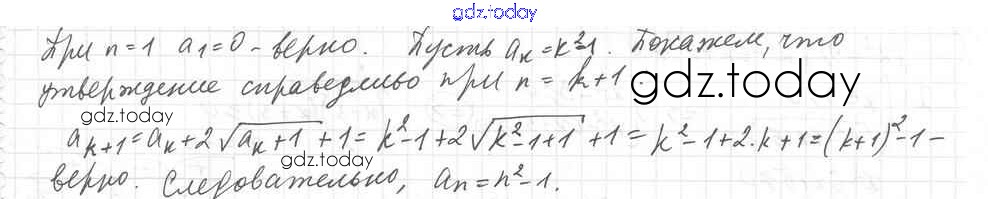 gdz.today
При n=1 a₁=0 - верно. Пусть aₖ=k²-1. Покажем, что
утверждение справедливо при n=k+1.
gdz.today
gdz.today
aₖ₊₁=aₖ+2√(aₖ+1)+1=k²-1+2√(k²-1+1)+1=k²-1+2·k+1=(k+1)²-1-
gdz.today
верно. Следовательно, aₙ=n²-1.
gdz.today